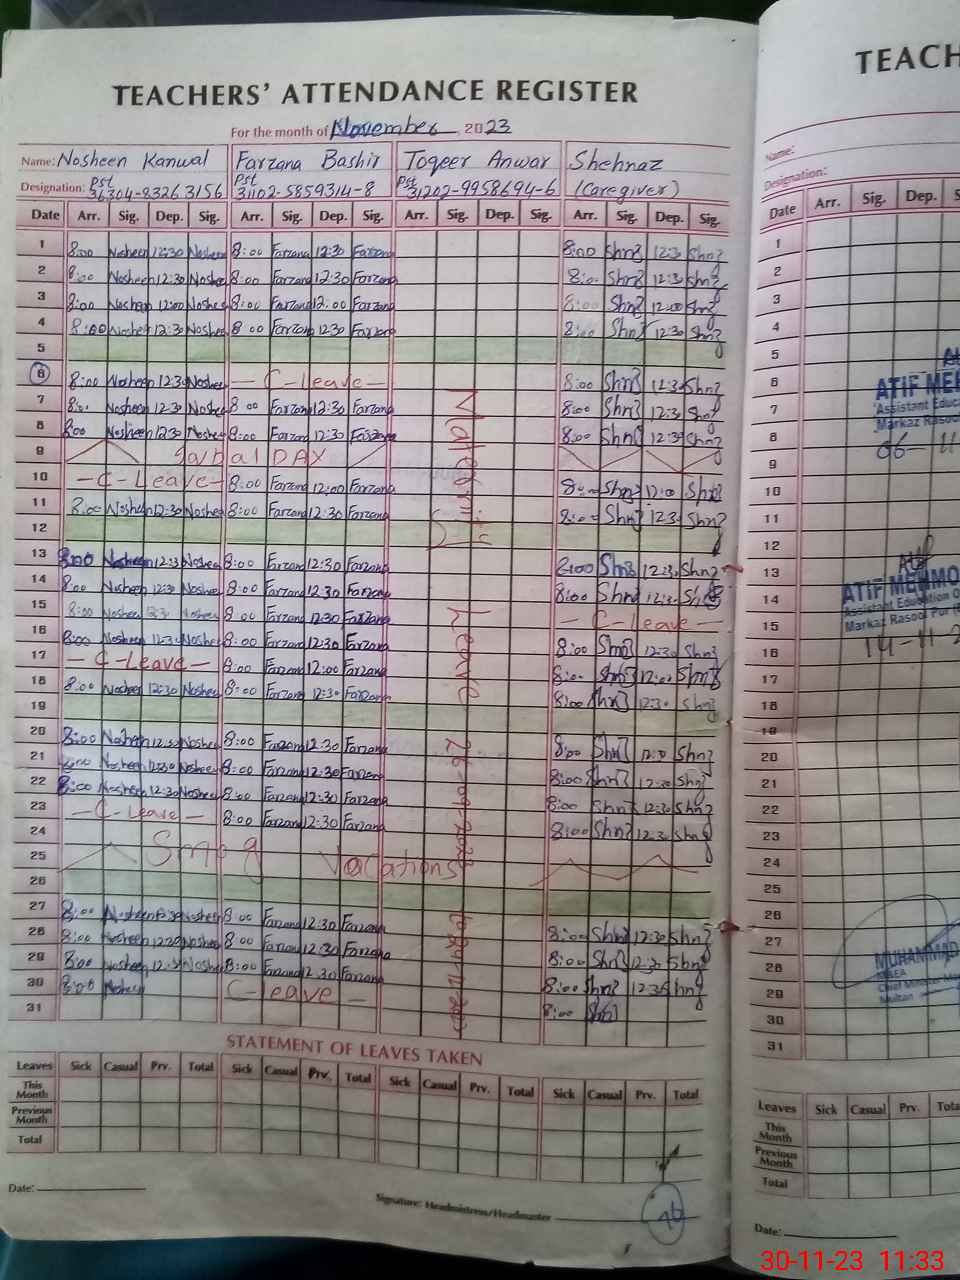 TEACHERS' ATTENDANCE REGISTER
For the month of November, 2023
Name: Nosheen Kanwal Farzana Bashir Toqeer Anwar Shehnaz
Designation: Pst 36304-8326315 6 Pst 31102-5859314-8 Pst 31202-9958694-6 (Caregiver)
Date Arr. Sig. Dep. Sig. Arr. Sig. Dep. Sig. Arr. Sig. Dep. Sig. Arr. Sig. Dep. Sig.
1 8:00 Nosheen 12:30 Nosheen 8:00 Farzana 12:30 Farzana 8:00 Shnz 12:30 Shnz
2 8:00 Nosheen 12:30 Nosheen 8:00 Farzana 12:30 Farzana 8:00 Shnz 12:30 Shnz
3 8:00 Nosheen 12:00 Nosheen 8:00 Farzana 12:00 Farzana 8:00 Shnz 12:00 Shnz
4 8:00 Nosheen 12:30 Nosheen 8:00 Farzana 12:30 Farzana 8:00 Shnz 12:30 Shnz
5
6 8:00 Nosheen 12:30 Nosheen - C-Leave - 8:00 Shnz 12:30 Shnz
7 8:00 Nosheen 12:30 Nosheen 8:00 Farzana 12:30 Farzana 8:00 Shnz 12:30 Shnz
8 8:00 Nosheen 12:30 Nosheen 8:00 Farzana 12:30 Farzana 8:00 Shnz 12:30 Shnz
9 Iqbal DAY
10 - C-Leave - 8:00 Farzana 12:00 Farzana 8:00 Shnz 12:00 Shnz
11 8:00 Nosheen 12:30 Nosheen 8:00 Farzana 12:30 Farzana 8:00 Shnz 12:30 Shnz
12
13 8:00 Nosheen 12:30 Nosheen 8:00 Farzana 12:30 Farzana 8:00 Shnz 12:30 Shnz
14 8:00 Nosheen 12:30 Nosheen 8:00 Farzana 12:30 Farzana 8:00 Shnz 12:30
15 8:00 Nosheen 12:30 Nosheen 8:00 Farzana 12:30 Farzana - C-Leave -
16 8:00 Nosheen 12:30 Nosheen 8:00 Farzana 12:30 Farzana 8:00 Shnz 12:30 Shnz
17 - C-Leave - 8:00 Farzana 12:00 Farzana 8:00 Shnz 12:00 Shnz
18 8:00 Nosheen 12:30 Nosheen 8:00 Farzana 12:30 Farzana 8:00 Shnz 12:30 Shnz
19
20 8:00 Nosheen 12:30 Nosheen 8:00 Farzana 12:30 Farzana 8:00 Shnz Shnz
21 8:00 Nosheen 12:30 Nosheen 8:00 Farzana 12:30 Farzana 8:00 Shnz 12:30 Shnz
22 8:00 Nosheen 12:30 Nosheen 8:00 Farzana 12:30 Farzana 8:00 Shnz 12:30 Shnz
23 - C-Leave - 8:00 Farzana 12:30 Farzana 8:00 Shnz 12:30 Shnz
24
25 Smog Vacations
26
27 8:00 Nosheen 12:30 Nosheen 8:00 Farzana 12:30 Farzana 8:00 Shnz 12:30 Shnz
28 8:00 Nosheen 12:30 Nosheen 8:00 Farzana 12:30 Farzana 8:00 Shnz 12:30 Shnz
29 8:00 Nosheen 12:30 Nosheen 8:00 Farzana 12:30 Farzana 8:00 Shnz 12:30 Shnz
30 8:00 Nosheen C-Leave - 8:00 Shnz
31
Maternity Leave 26-09-2023
STATEMENT OF LEAVES TAKEN
Leaves Sick Casual Prv. Total Sick Casual Prv. Total Sick Casual Prv. Total Sick Casual Prv. Total
This Month
Previous Month
Total
Date:
Signature: Headmistress/Headmaster
TEACH
Name:
Designation:
Date Arr. Sig. Dep.
1
2
3
4
5
6
7
8
9
10
11
12
13
14
15
16
17
18
19
20
21
22
23
24
25
26
27
28
29
30
31
ATIF
Assistant
Markaz
06-11
ATIF MEHMO
Assistant Education O
Markaz Rasool Pur
14-11-2
MUHAMMAD
Multan
Leaves Sick Casual Prv.
This Month
Previous Month
Total
Date:
30-11-23 11:33